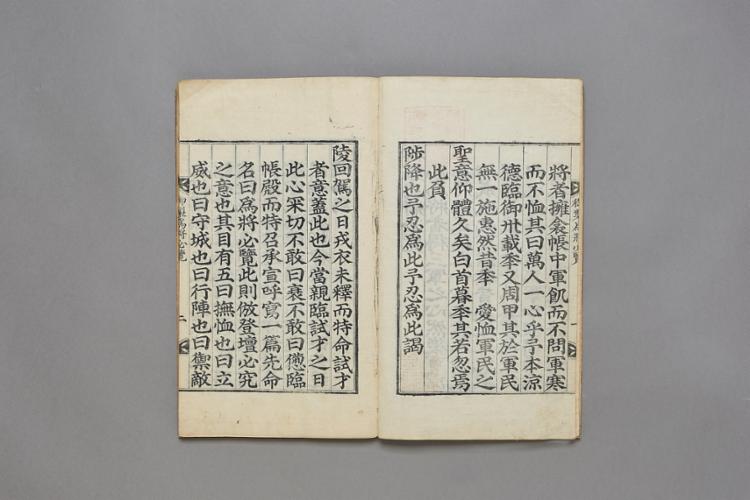 將者擁衾帳中軍飢而不問軍寒
而不恤其曰萬人一心乎予本涼
德臨御卅載季又周甲其於軍民
無一施惠然昔季 愛恤軍民之
聖意仰體久矣白首暮季其若忽焉
此負
陟降也予忍爲此予忍爲此謁
陵回駕之日戎衣未釋而特命試才
者意蓋此也今當親臨試才之日
此心采切不敢曰衰不敢曰憊臨
帳殿而特召承宣呼寫一篇先命
名曰爲將必覽此則倣登壇必究
之意也其目有五曰撫恤也曰立
威也曰守城也曰行陣也曰禦敵
御製爲將必覽
二